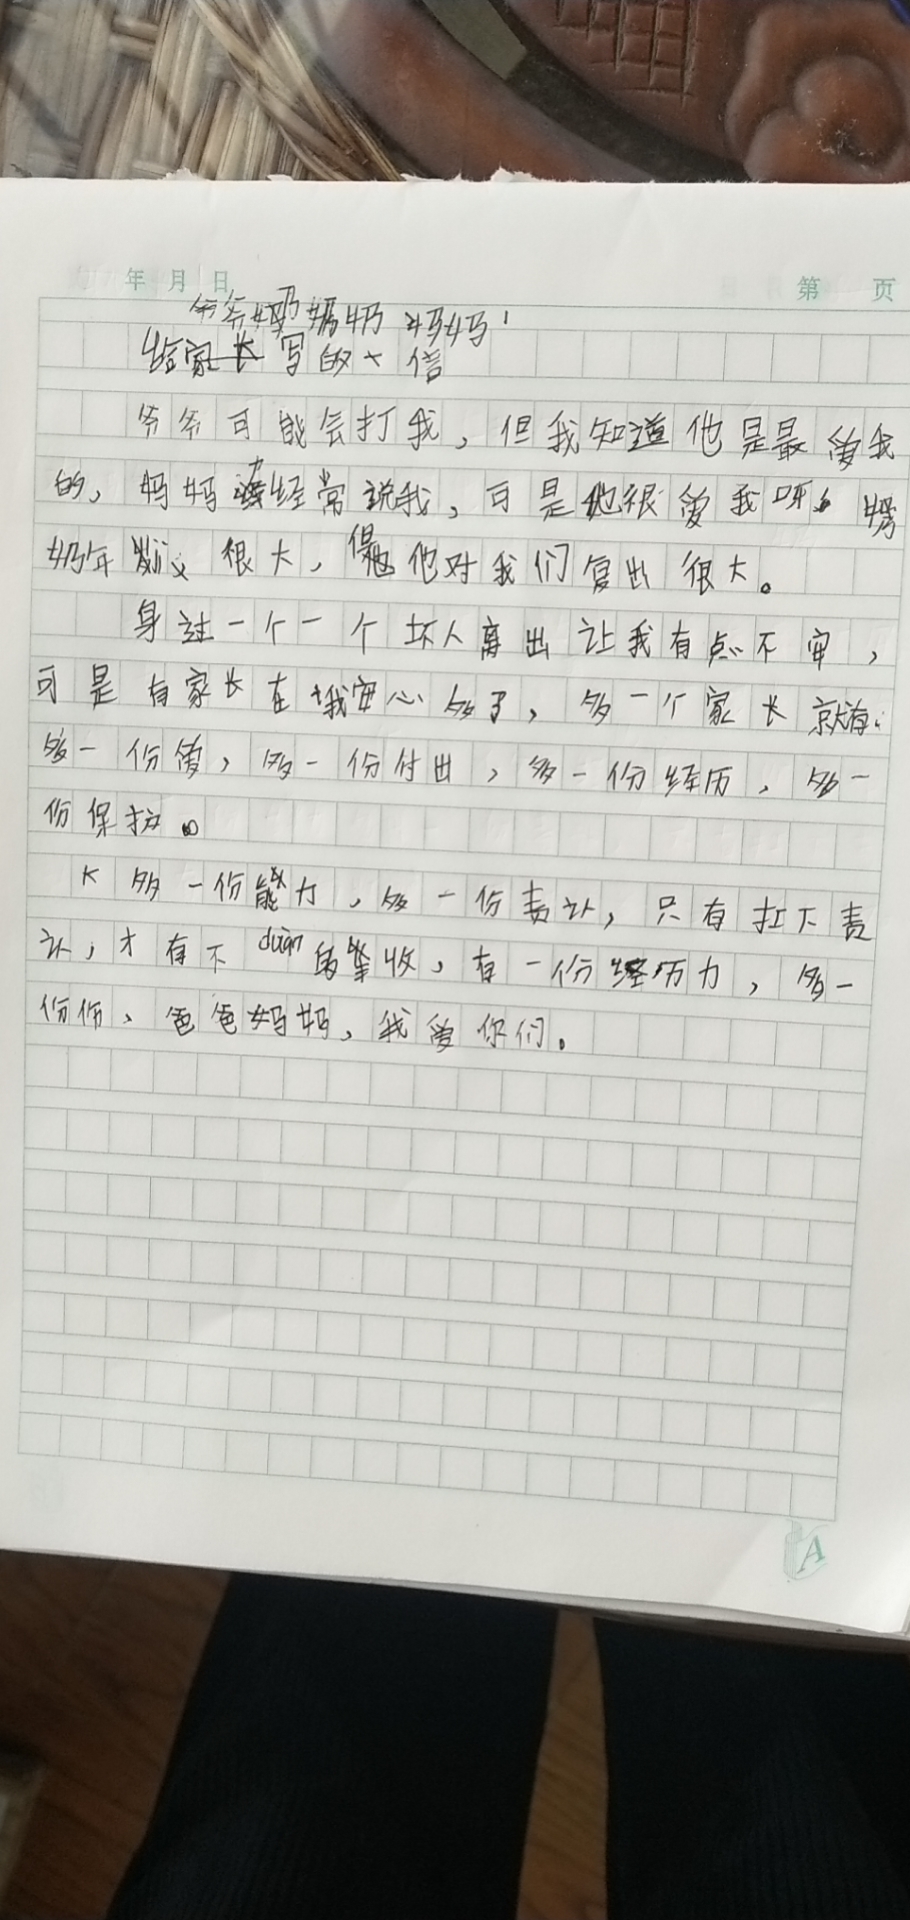 年 月 日 第 页
爷爷奶奶妈妈
给家长写的 信
爷爷可能会打我，但我知道他是最爱我
的，妈妈经常说我，可是他很爱我呀
奶年 很大， 他对我们 出很大。
身 一个一个坏人 出让我有点不安，
可是有家长在我安心多了，多一个家长就有
多一份爱，多一份付出，多一份经历，多一
份保护。
多一份能力，多一份责 ，只有扛下责
，才有不duàn的 收，有一份经历力，多一
份 ，爸爸妈妈，我爱你们。
A